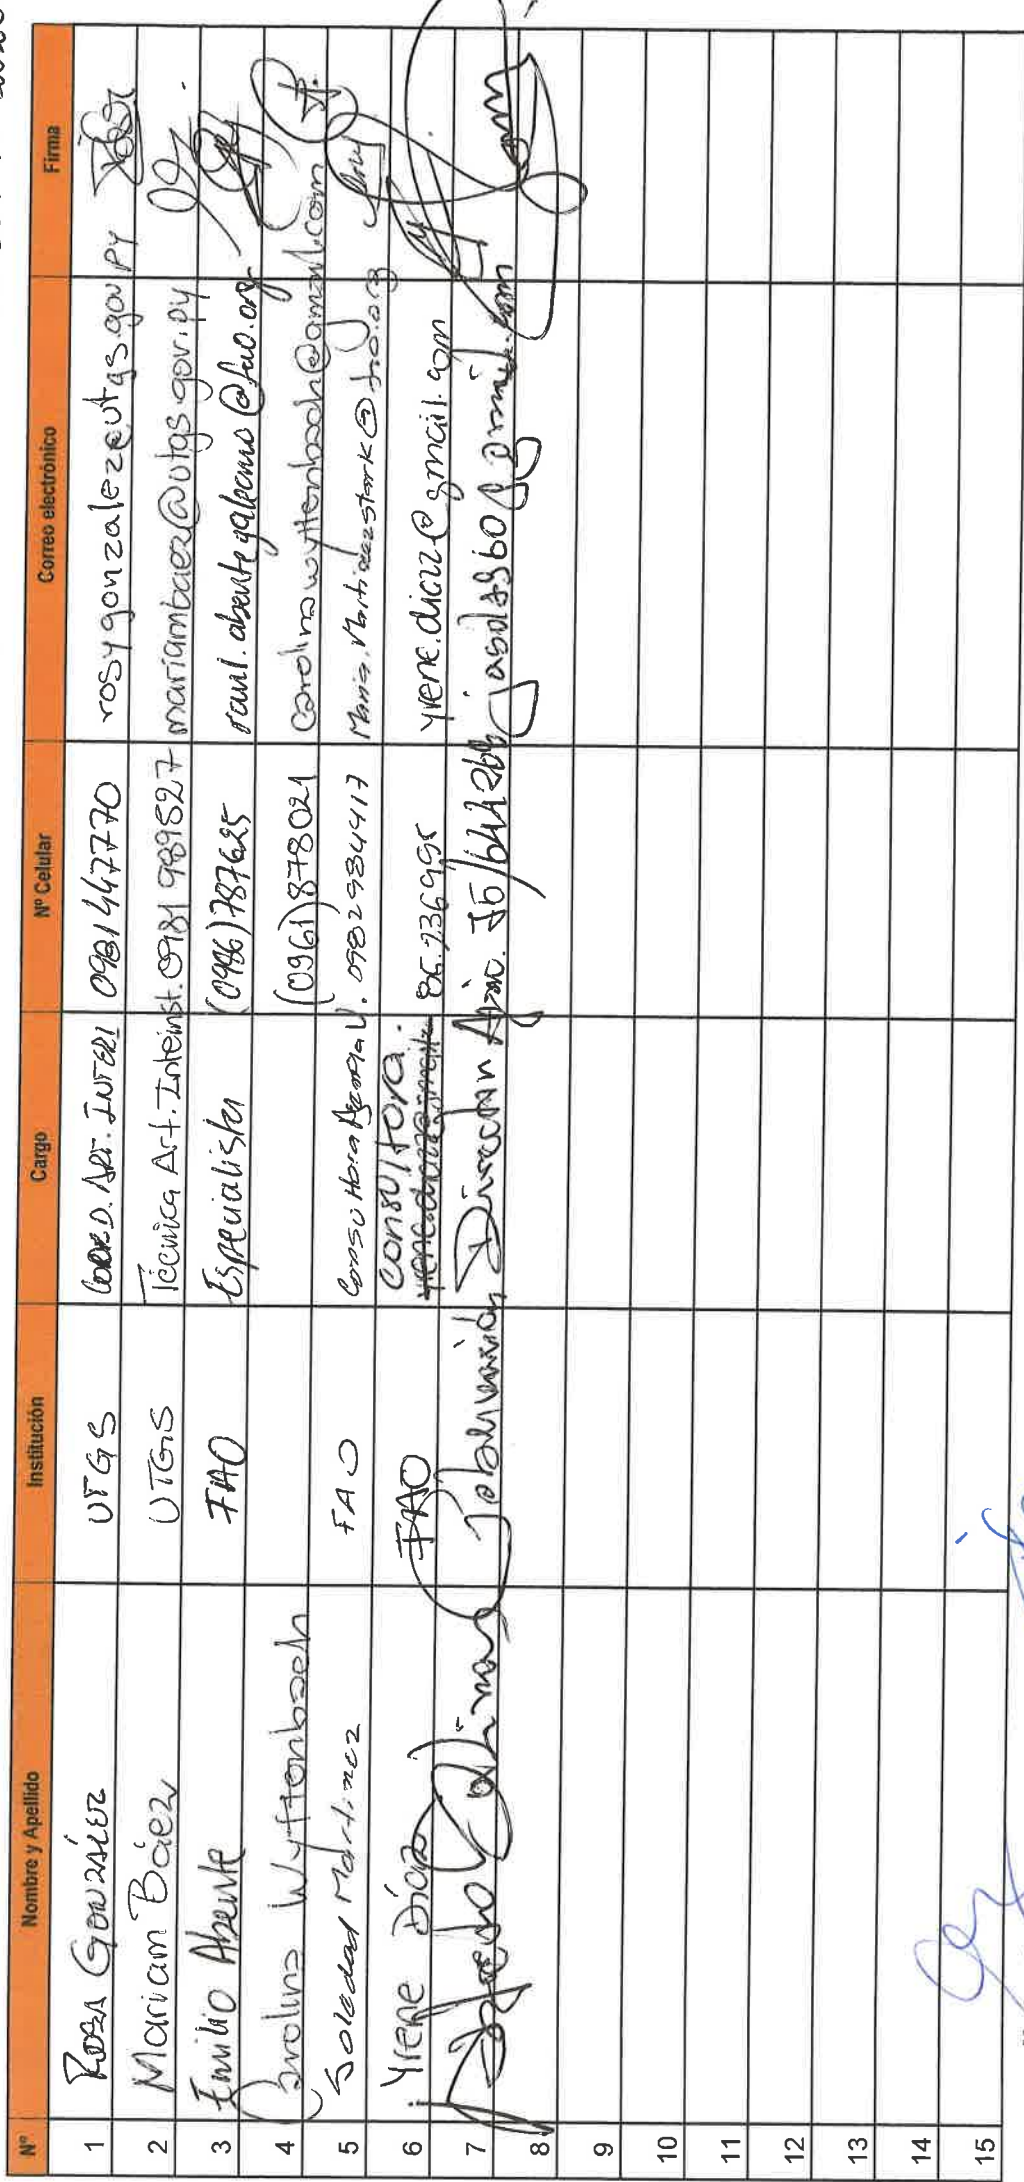 Nº Nombre y Apellido Institución Cargo Nº Celular Correo electrónico Firma
1 ROSA GONZÁLEZ UTGS COORD. ART. INTERI 0981447770 rosygonzalez@utgs.gov.py
2 Mariam Báez UTGS Técnica Art. Inteinst. 0981 989527 mariambaez@utgs.gov.py
3 Emilio Abente FAO Especialista (0986)787625 raul.abentegaleano@fao.org
4 Carolina Wyttenbach (0961)878021 carolinawyttenbach@gmail.com
5 Soledad Martinez FAO 0982984417 Maria.Martinezstark@fao.org
6 Yrene Díaz FAO consultora. yrene.diazz@gmail.com
7 Gobernación
8
9
10
11
12
13
14
15